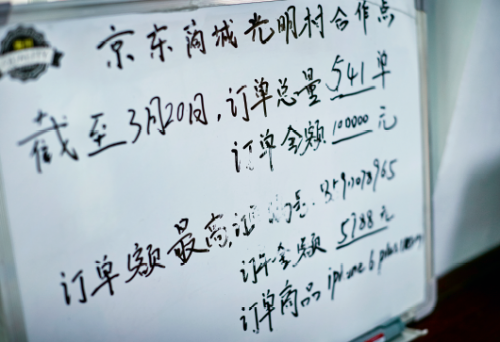 京东商城光明村合作点
截至3月20日,订单总量541单
订单金额100000元
订单额最高,订单号:
订单金额5788元
订单商品iphone 6 plus